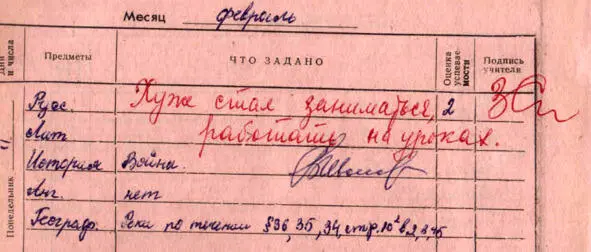 Месяц февраль
Дни и числа Предметы ЧТО ЗАДАНО Оценка успевае-мости Подпись учителя
Понедельник
Русс. Хуже стал заниматься, 2
Лит. работать на уроках.
История Войны.
Анг. нет
Географ. Реки по течении § 36, 35, 34, стр. 10